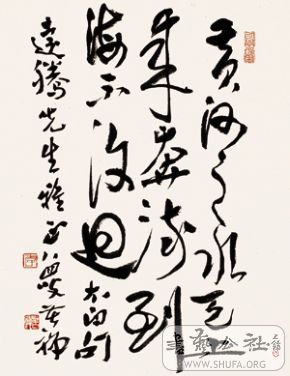 黄河之水天上
来奔流到
海不復迴 太白句
達騰先生雅正 八四叟
藝公社
WWW.SHUFA.ORG